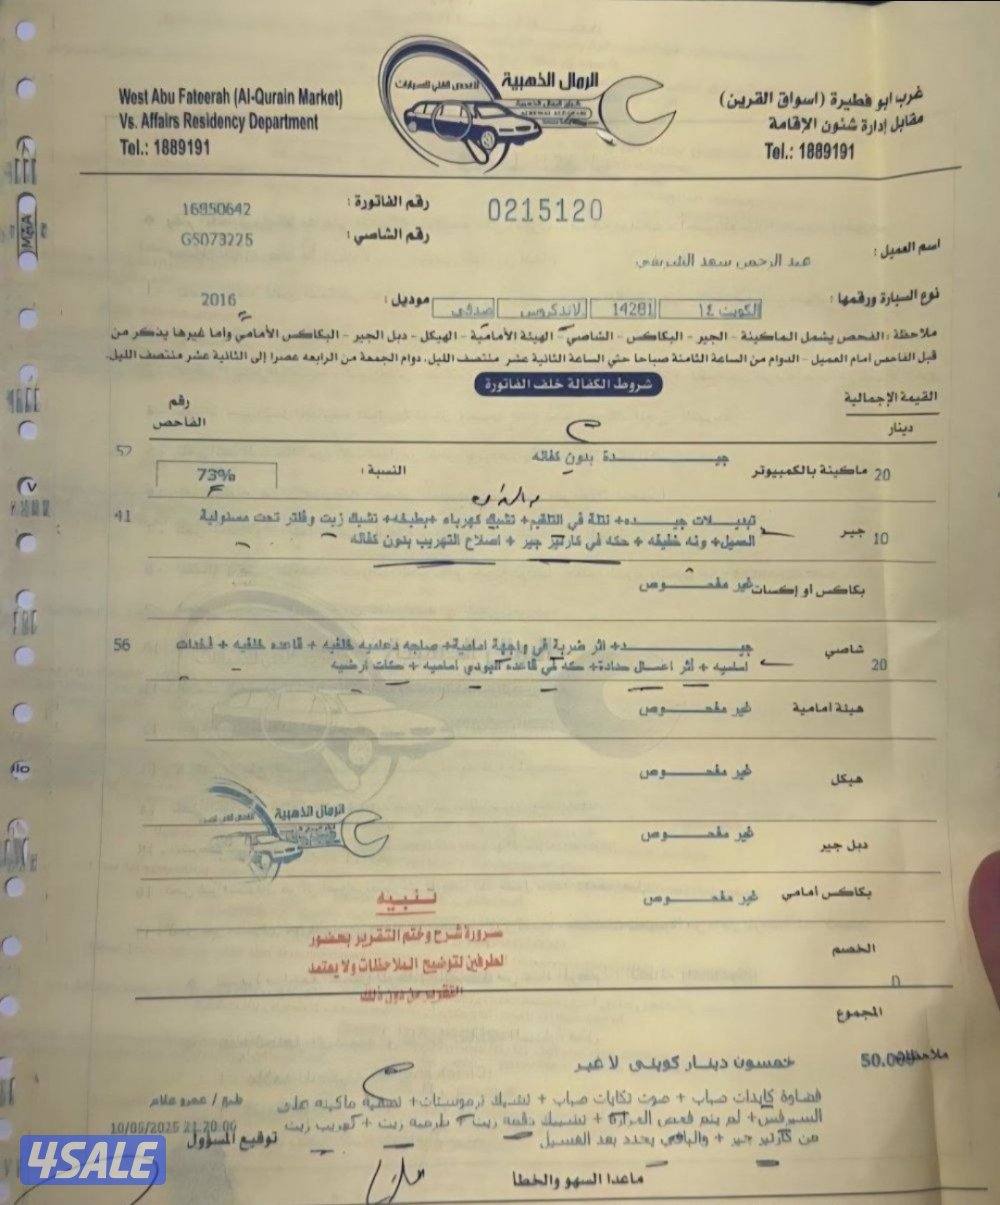 West Abu Fateerah (Al-Qurain Market)
Vs. Affairs Residency Department
Tel.: 1889191
الرمال الذهبية
للفحص الفني للسيارات
غرب ابو فطيرة (اسواق القرين)
مقابل إدارة شئون الإقامة
Tel.: 1889191
رقم الفاتورة : 16950642
0215120
رقم الشاصي : GS073225
اسم العميل : عبد الرحمن سعد
نوع السيارة ورقمها : الكويت ١٤ 14281 لاندكروس صدفي موديل : 2016
ملاحظة : الفحص يشمل الماكينة - الجير - البكاكس - الشاصي - الهيئة الأمامية - الهيكل - دبل الجير - البكاكس الأمامي وأما غيرها يذكر من
قبل الفاحص امام العميل - الدوام من الساعة الثامنة صباحا حتي الساعة الثانية عشر منتصف الليل. دوام الجمعة من الرابعه عصرا إلى الثانية عشر منتصف الليل.
شروط الكفالة خلف الفاتورة
القيمة الإجمالية
دينار
رقم الفاحص
20 ماكينة بالكمبيوتر جيـــدة بدون كفاله النسبة : 73% 57
10 جير تبديلات جيـــده+ نتلة في التلقيم+ تشيك كهرباء +بطيخه+ تشيك زيت وفلتر تحت مسئولية 41
العميل+ ونه خفيفه + حكه في كارتير جير + اصلاح التهريب بدون كفاله
بكاكس او إكسات غير مفحـــوص
20 شاصي جيـــد+ اثر ضربة في واجهة امامية+ صاجه دعاميه خلفيه + قاعده خلفيه + فخذات 56
اماميه + أثر اعمال حدادة+ حكه في قاعده البودي اماميه + حكات ارضيه
هيئة امامية غير مفحـــوص
هيكل غير مفحـــوص
دبل جير غير مفحـــوص
بكاكس امامي غير مفحـــوص
الرمال الذهبية
تنبيه
ضرورة شرح وختم التقرير بحضور
الطرفين لتوضيح الملاحظات ولا يعتمد
التقرير من دون ذلك
الخصم
0
المجموع
50.000 خمسون دينار كويتي لا غير
ملاحظات
كايدات صباب + صوت تكايات صباب + تشيك ترموستات+ ماكينه على
السيرفس+ لم يتم فحص الحرارة + تشيك نقصه زيت+ طرمبه زيت + تهريب زيت
من كارتير جير + والباقي يحدد بعد الغسيل
طبع / عمرو علام
10/05/2025 21:20:00
توقيع المسؤول
ماعدا السهو والخطا
4SALE